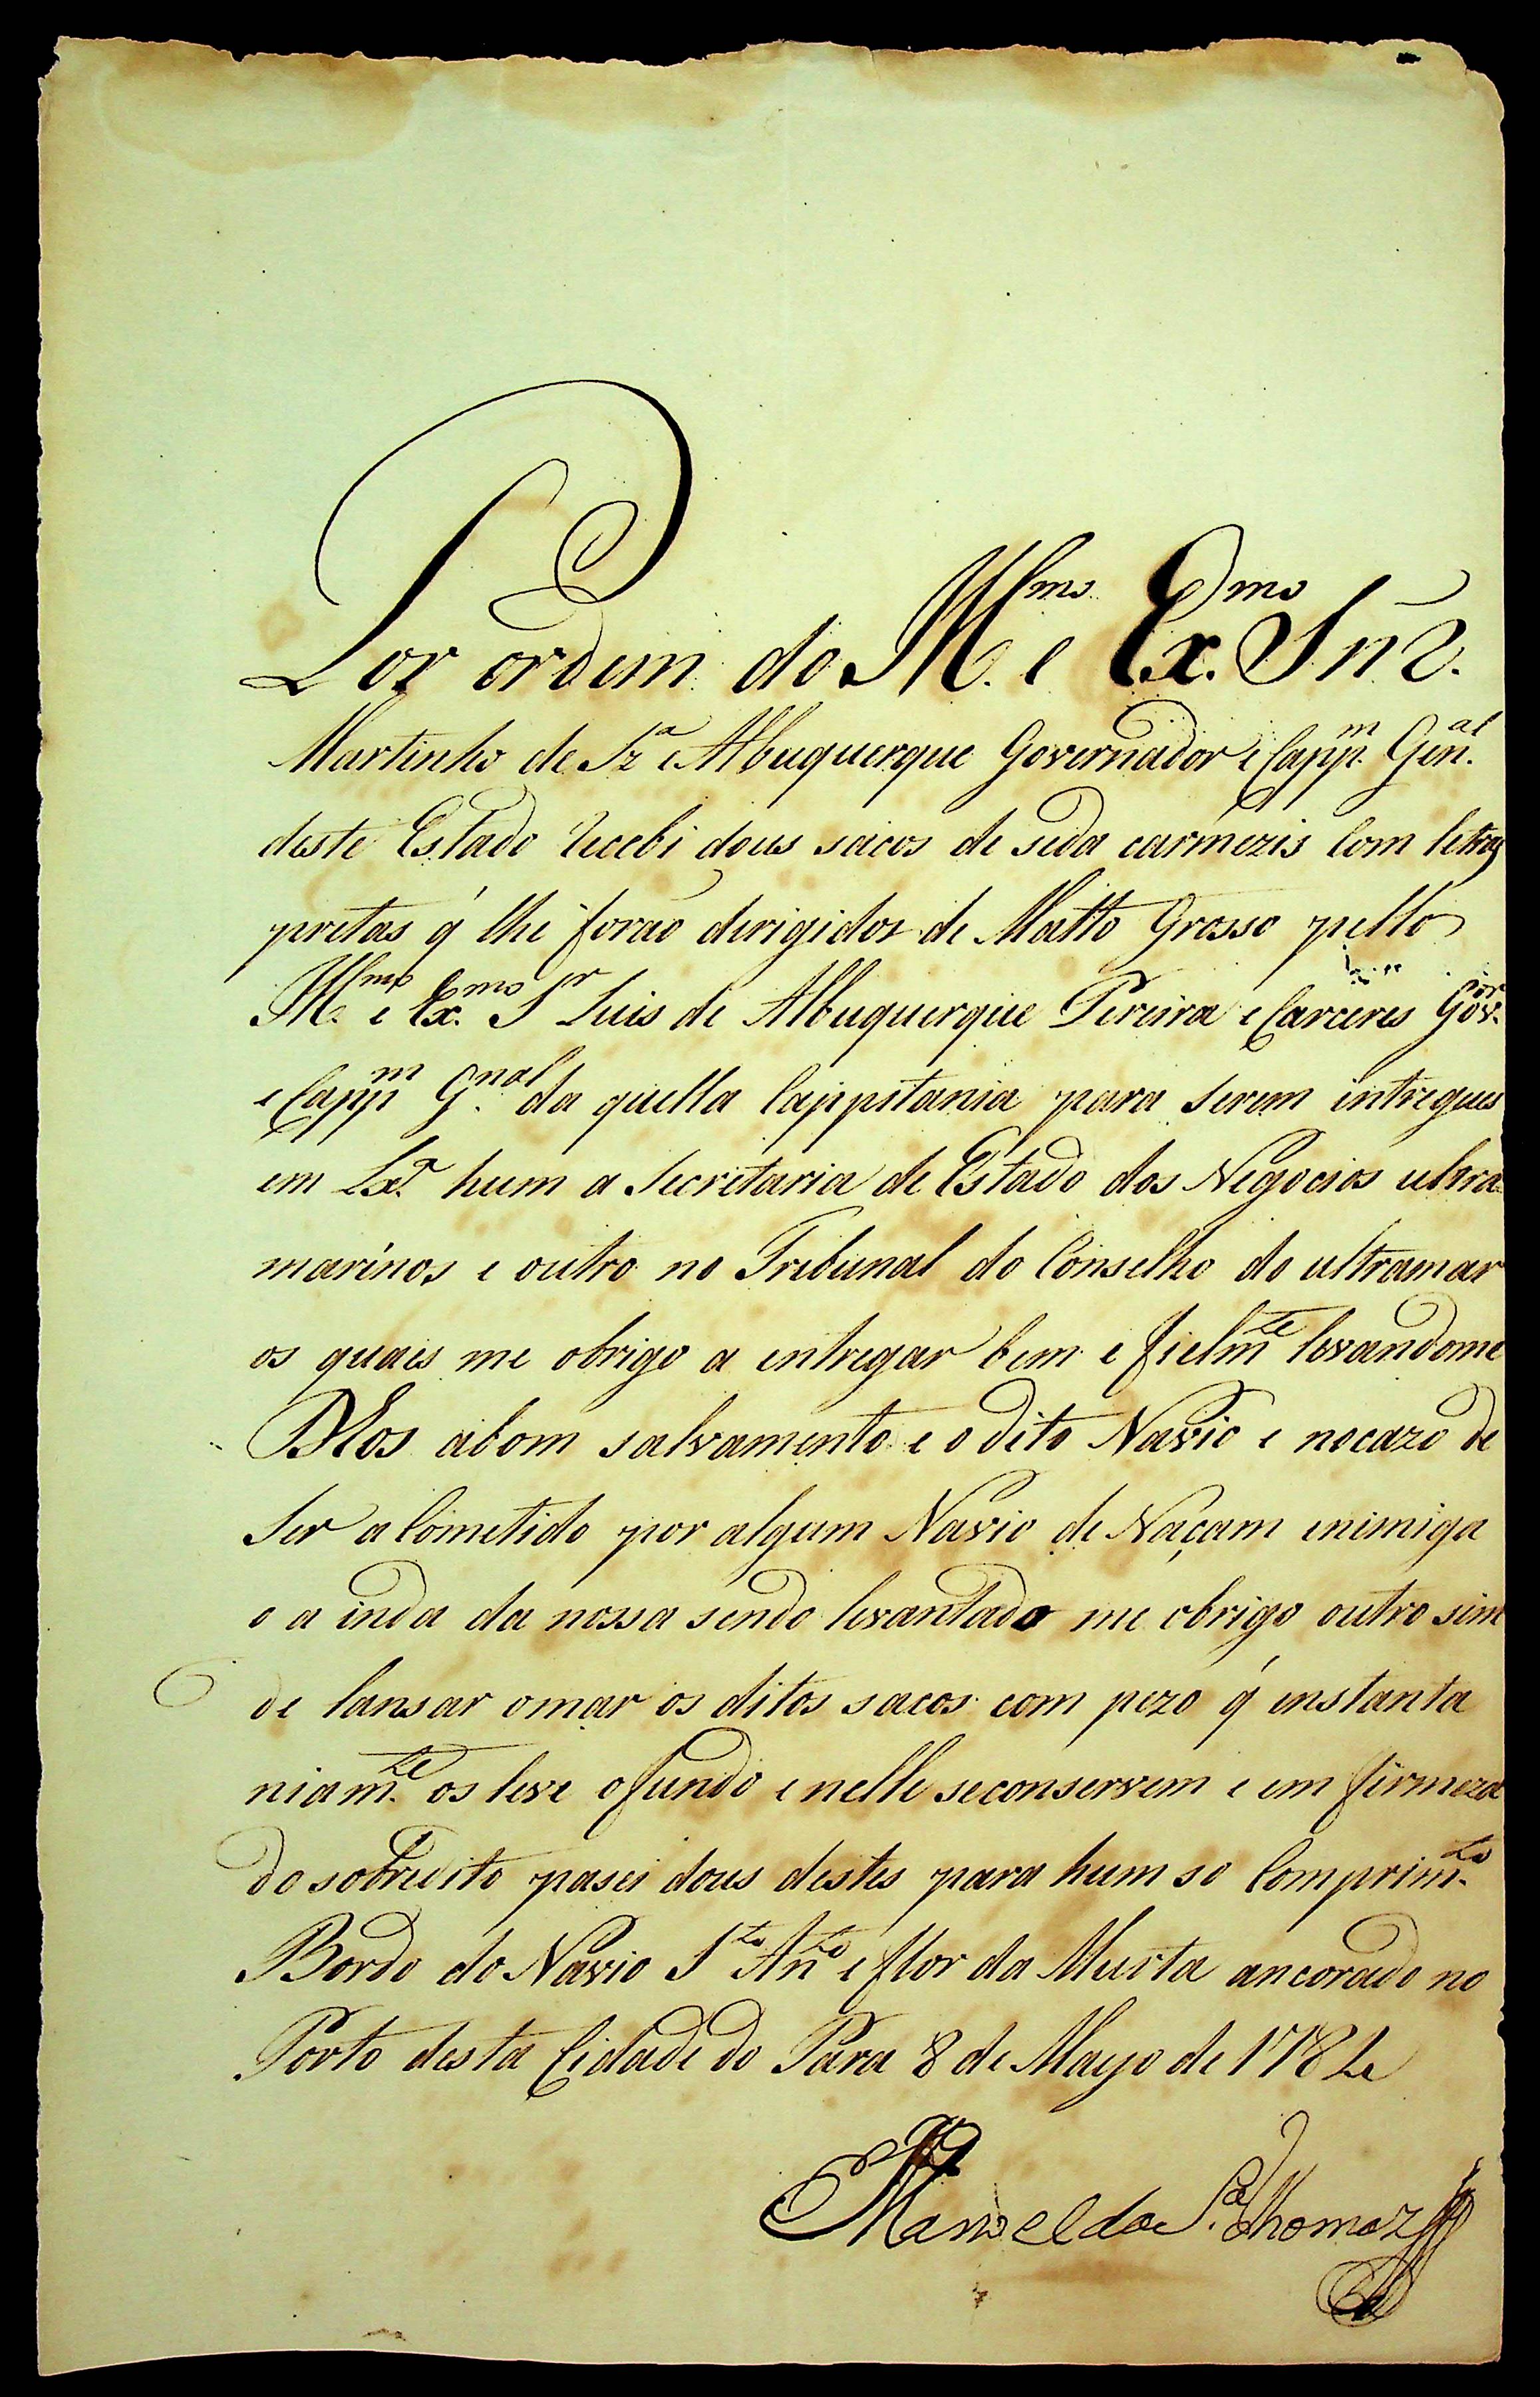 Por ordem do Ill.mo e Ex.mo Snr.
Martinho de Sz.a e Albuquerque Governador e Capp.m Gen.al
deste Estado Recebi dous sacos de seda carmezis Com letras
pretas q' lhe forão derigidos de Matto Grosso pello
Ill.mo e Ex.mo S.r Luis de Albuquerque Pereira e Carceres Gov.or
e Capp.m G.nal da quella Cappitania para serem intregues
em Lx.a hum a Secretaria de Estado dos Negocios ultra
marinos e outro no Tribunal do Conselho do ultramar
os quais me obrigo a entregar bem e fielm.te levandome
D'los abom salvamento e o dito Navio e nocazo de
Ser aCometido por algum Navio de Naçam inimiga
o a inda da nossa sendo levantado me obrigo outro sim
de lansar omar os ditos sacos com pezo q' instanta
niam.te os leve ofundo e nelle seconservem e em firmeza
do sobredito pasei dous destes para hum so Comprim.to
Bordo do Navio S.to An.to e flor da Murta ancorado no
Porto desta Cidade do Para 8 de Mayo de 1784
Manoel da S.a Thomaz